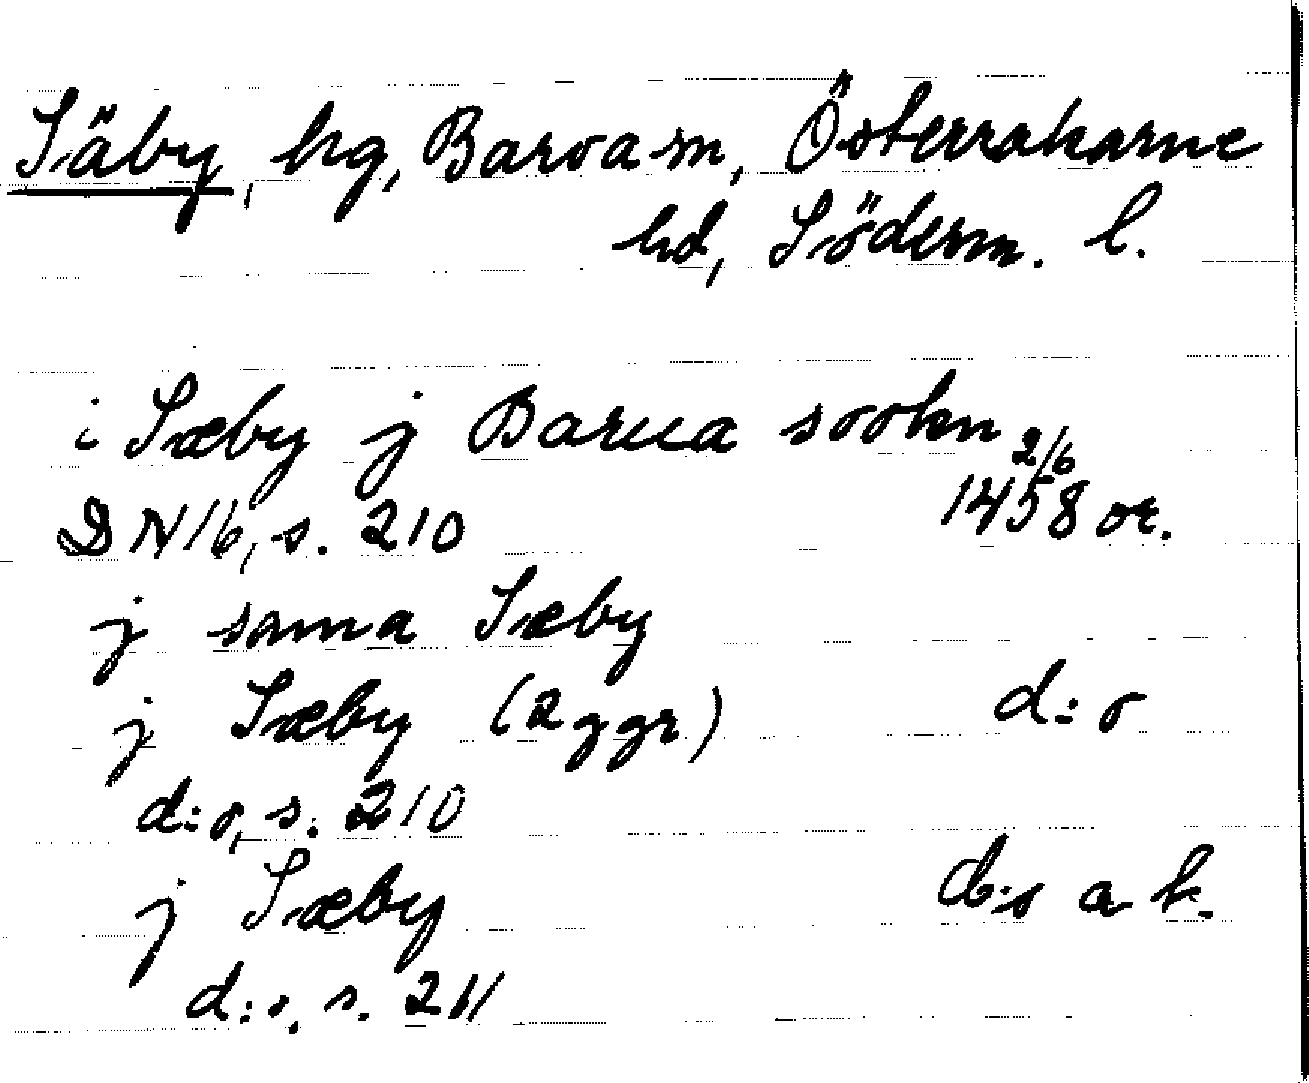 Säby, hg, Barva sn, Österrekarne
hd, Söderm. l.
i Sæby j Barua sookn 2/6
DN 16, s. 210 1458 or.
j sama Sæby
j Sæby (2 ggr) d:o
d:o, s. 210
j Sæby d:o a k.
d:o, s. 211